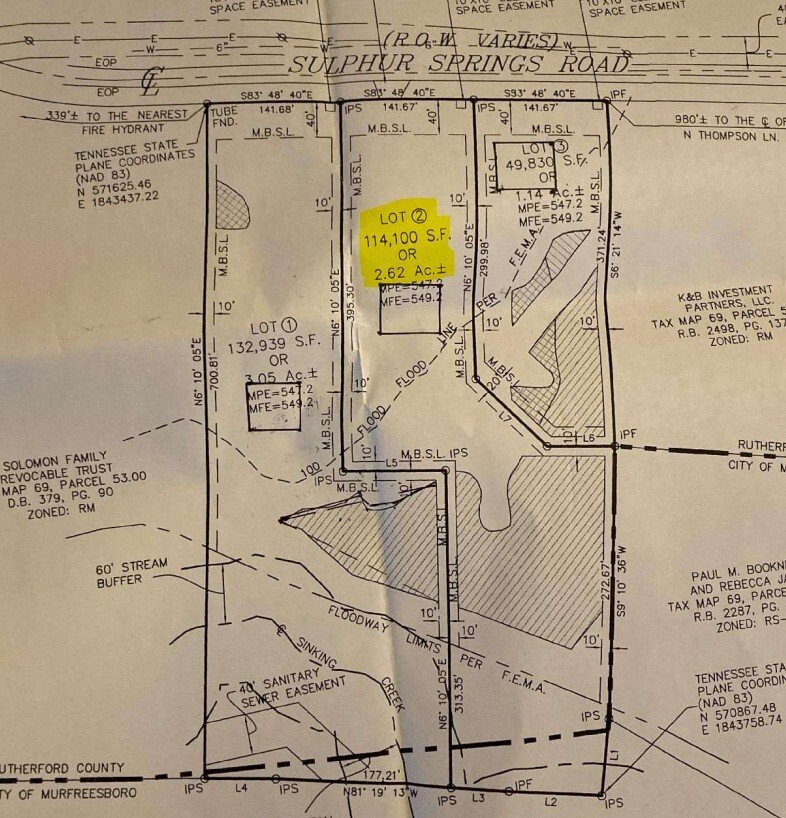 SPACE EASEMENT
SPACE EASEMENT
SPACE EASEMENT
(R.O.W VARIES)
SULPHUR SPRINGS ROAD
E
E
E
E
E
W
6"
W
W
EOP
EOP
℄
S83° 48' 40"E
S83° 48' 40"E
S83° 48' 40"E
141.68'
141.67'
141.67'
IPS
IPS
IPF
TUBE
FND.
339'± TO THE NEAREST
FIRE HYDRANT
980'± TO THE ℄ OF
N THOMPSON LN.
M.B.S.L.
M.B.S.L.
M.B.S.L.
40'
40'
40'
TENNESSEE STATE
PLANE COORDINATES
(NAD 83)
N 571625.46
E 1843437.22
LOT ③
49,830 S.F.
OR
1.14 Ac.±
MPE=547.2
MFE=549.2
LOT ②
114,100 S.F.
OR
2.62 Ac.±
MPE=547.2
MFE=549.2
LOT ①
132,939 S.F.
OR
3.05 Ac.±
MPE=547.2
MFE=549.2
M.B.S.L.
M.B.S.L.
M.B.S.
M.B.S.L.
M.B.S.L.
M.B.S.L.
M.B.S.
10'
10'
10'
10'
10'
10'
10'
10'
10'
20'
N6° 10' 05"E
700.81'
N6° 10' 05"E
395.30'
N6° 10' 05"E
299.98'
S6° 21' 14"W
371.24'
100
FLOOD
FLOOD
LINE
PER
F.E.M.A.
K&B INVESTMENT
PARTNERS, LLC.
TAX MAP 69, PARCEL 5
R.B. 2498, PG. 137
ZONED: RM
L7
L6
IPF
RUTHERF
CITY OF M
SOLOMON FAMILY
REVOCABLE TRUST
MAP 69, PARCEL 53.00
D.B. 379, PG. 90
ZONED: RM
IPS
L5
M.B.S.L.
IPS
M.B.S.L.
10'
M.B.S.L.
M.B.S.L.
60' STREAM
BUFFER
272.67'
S9° 10' 36"W
PAUL M. BOOKN
AND REBECCA JA
TAX MAP 69, PARCE
R.B. 2287, PG.
ZONED: RS-
FLOODWAY
LIMITS
PER
F.E.M.A.
10'
10'
10'
℄
SINKING
CREEK
40' SANITARY
SEWER EASEMENT
N6° 10' 05"E
313.35'
TENNESSEE STA
PLANE COORDIN
(NAD 83)
N 570867.48
E 1843758.74
IPS
L1
UTHERFORD COUNTY
TY OF MURFREESBORO
IPS
L4
IPS
177.21'
N81° 19' 13"W
IPS
L3
IPF
L2
IPS